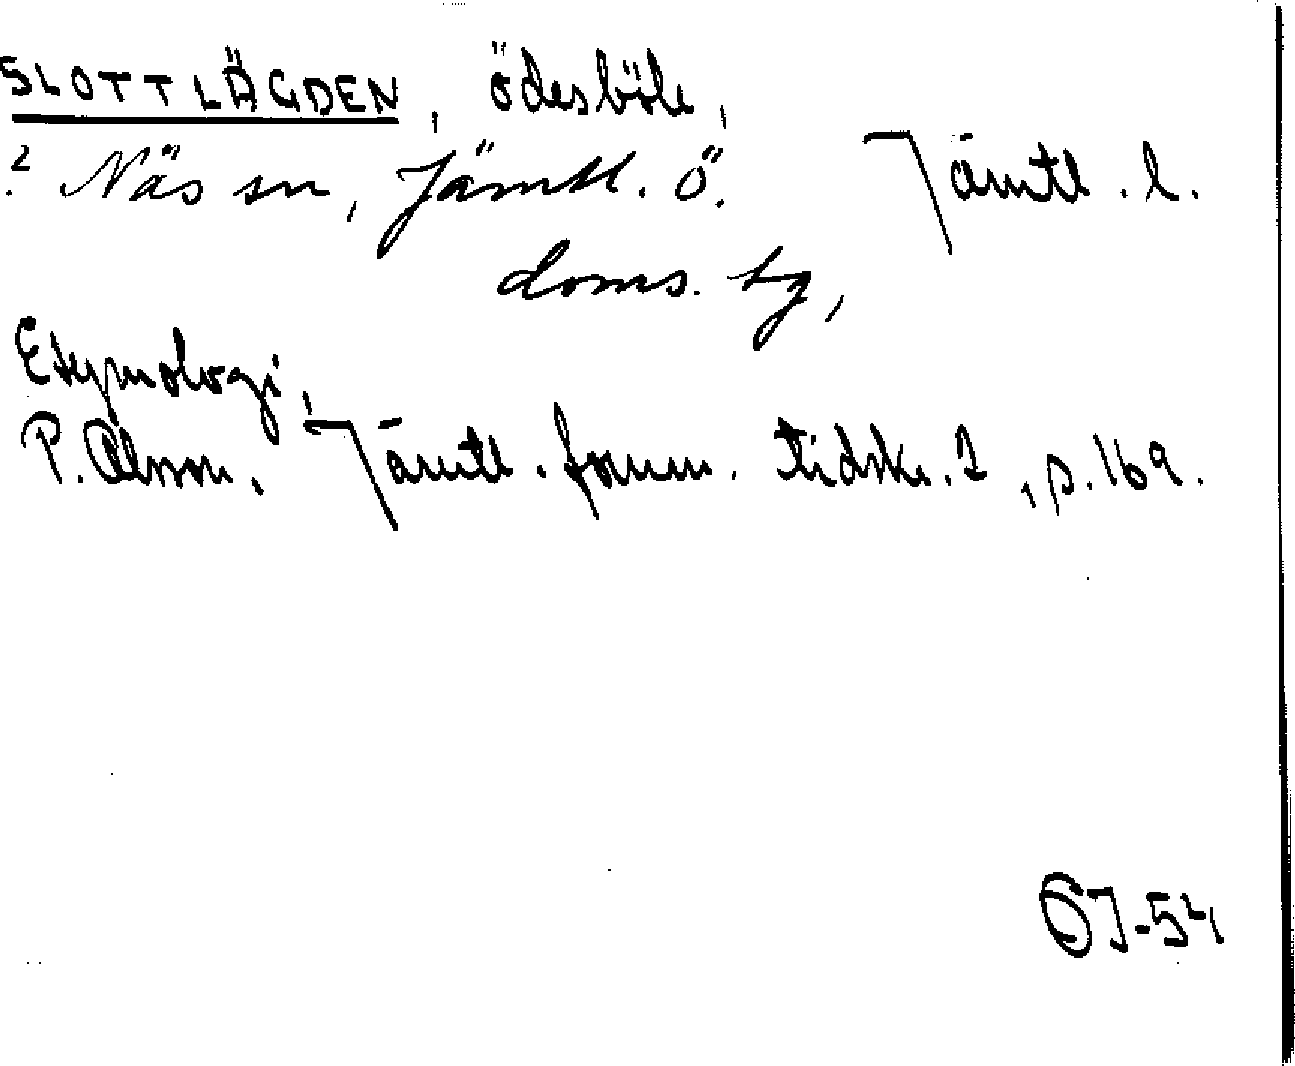 SLOTTLÄGDEN, ödesböle,
? Näs sn, Jämtl. Ö. Jämtl. l.
doms. tg,
Etymologi,
P. Olsson, Jämtl. fornm. tidskr. 2, s. 169.
SJ-54